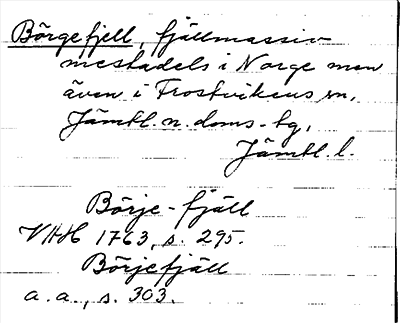 Börgefjell, fjällmassiv
mestadels i Norge men
även i Frostvikens sn,
Jämtl. n. doms. tg,
Jämtl. l.
Börje-fjäll
VHH 1763, s. 295.
Börjefjäll
a. a., s. 303.